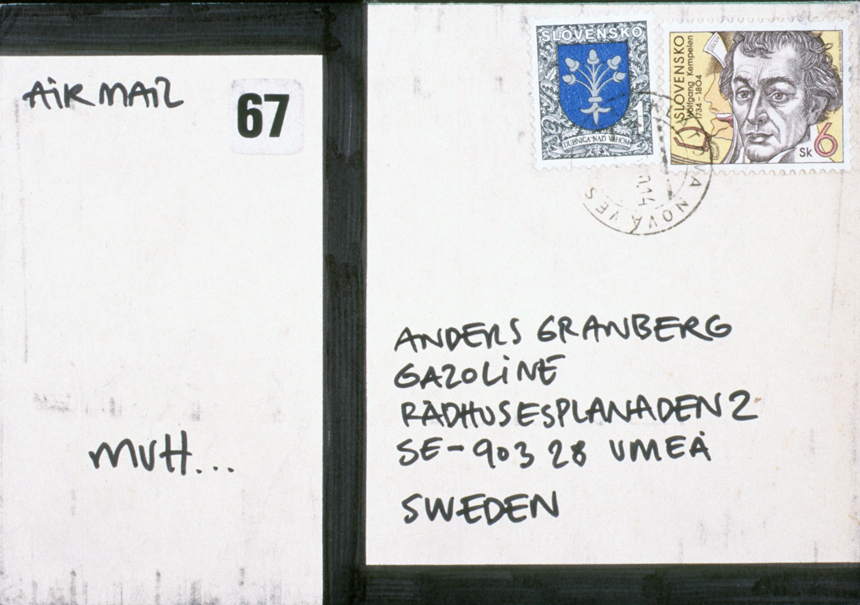 AIRMAIL
67
MUH...
SLOVENSKO
1
DUBNICA NAD VÁHOM
SLOVENSKO
Wolfgang Kempelen
1734-1804
Sk 6
NOVÁ VES
ANDERS GRANBERG
GAZOLINE
RÅDHUSESPLANADEN 2
SE-903 28 UMEÅ
SWEDEN